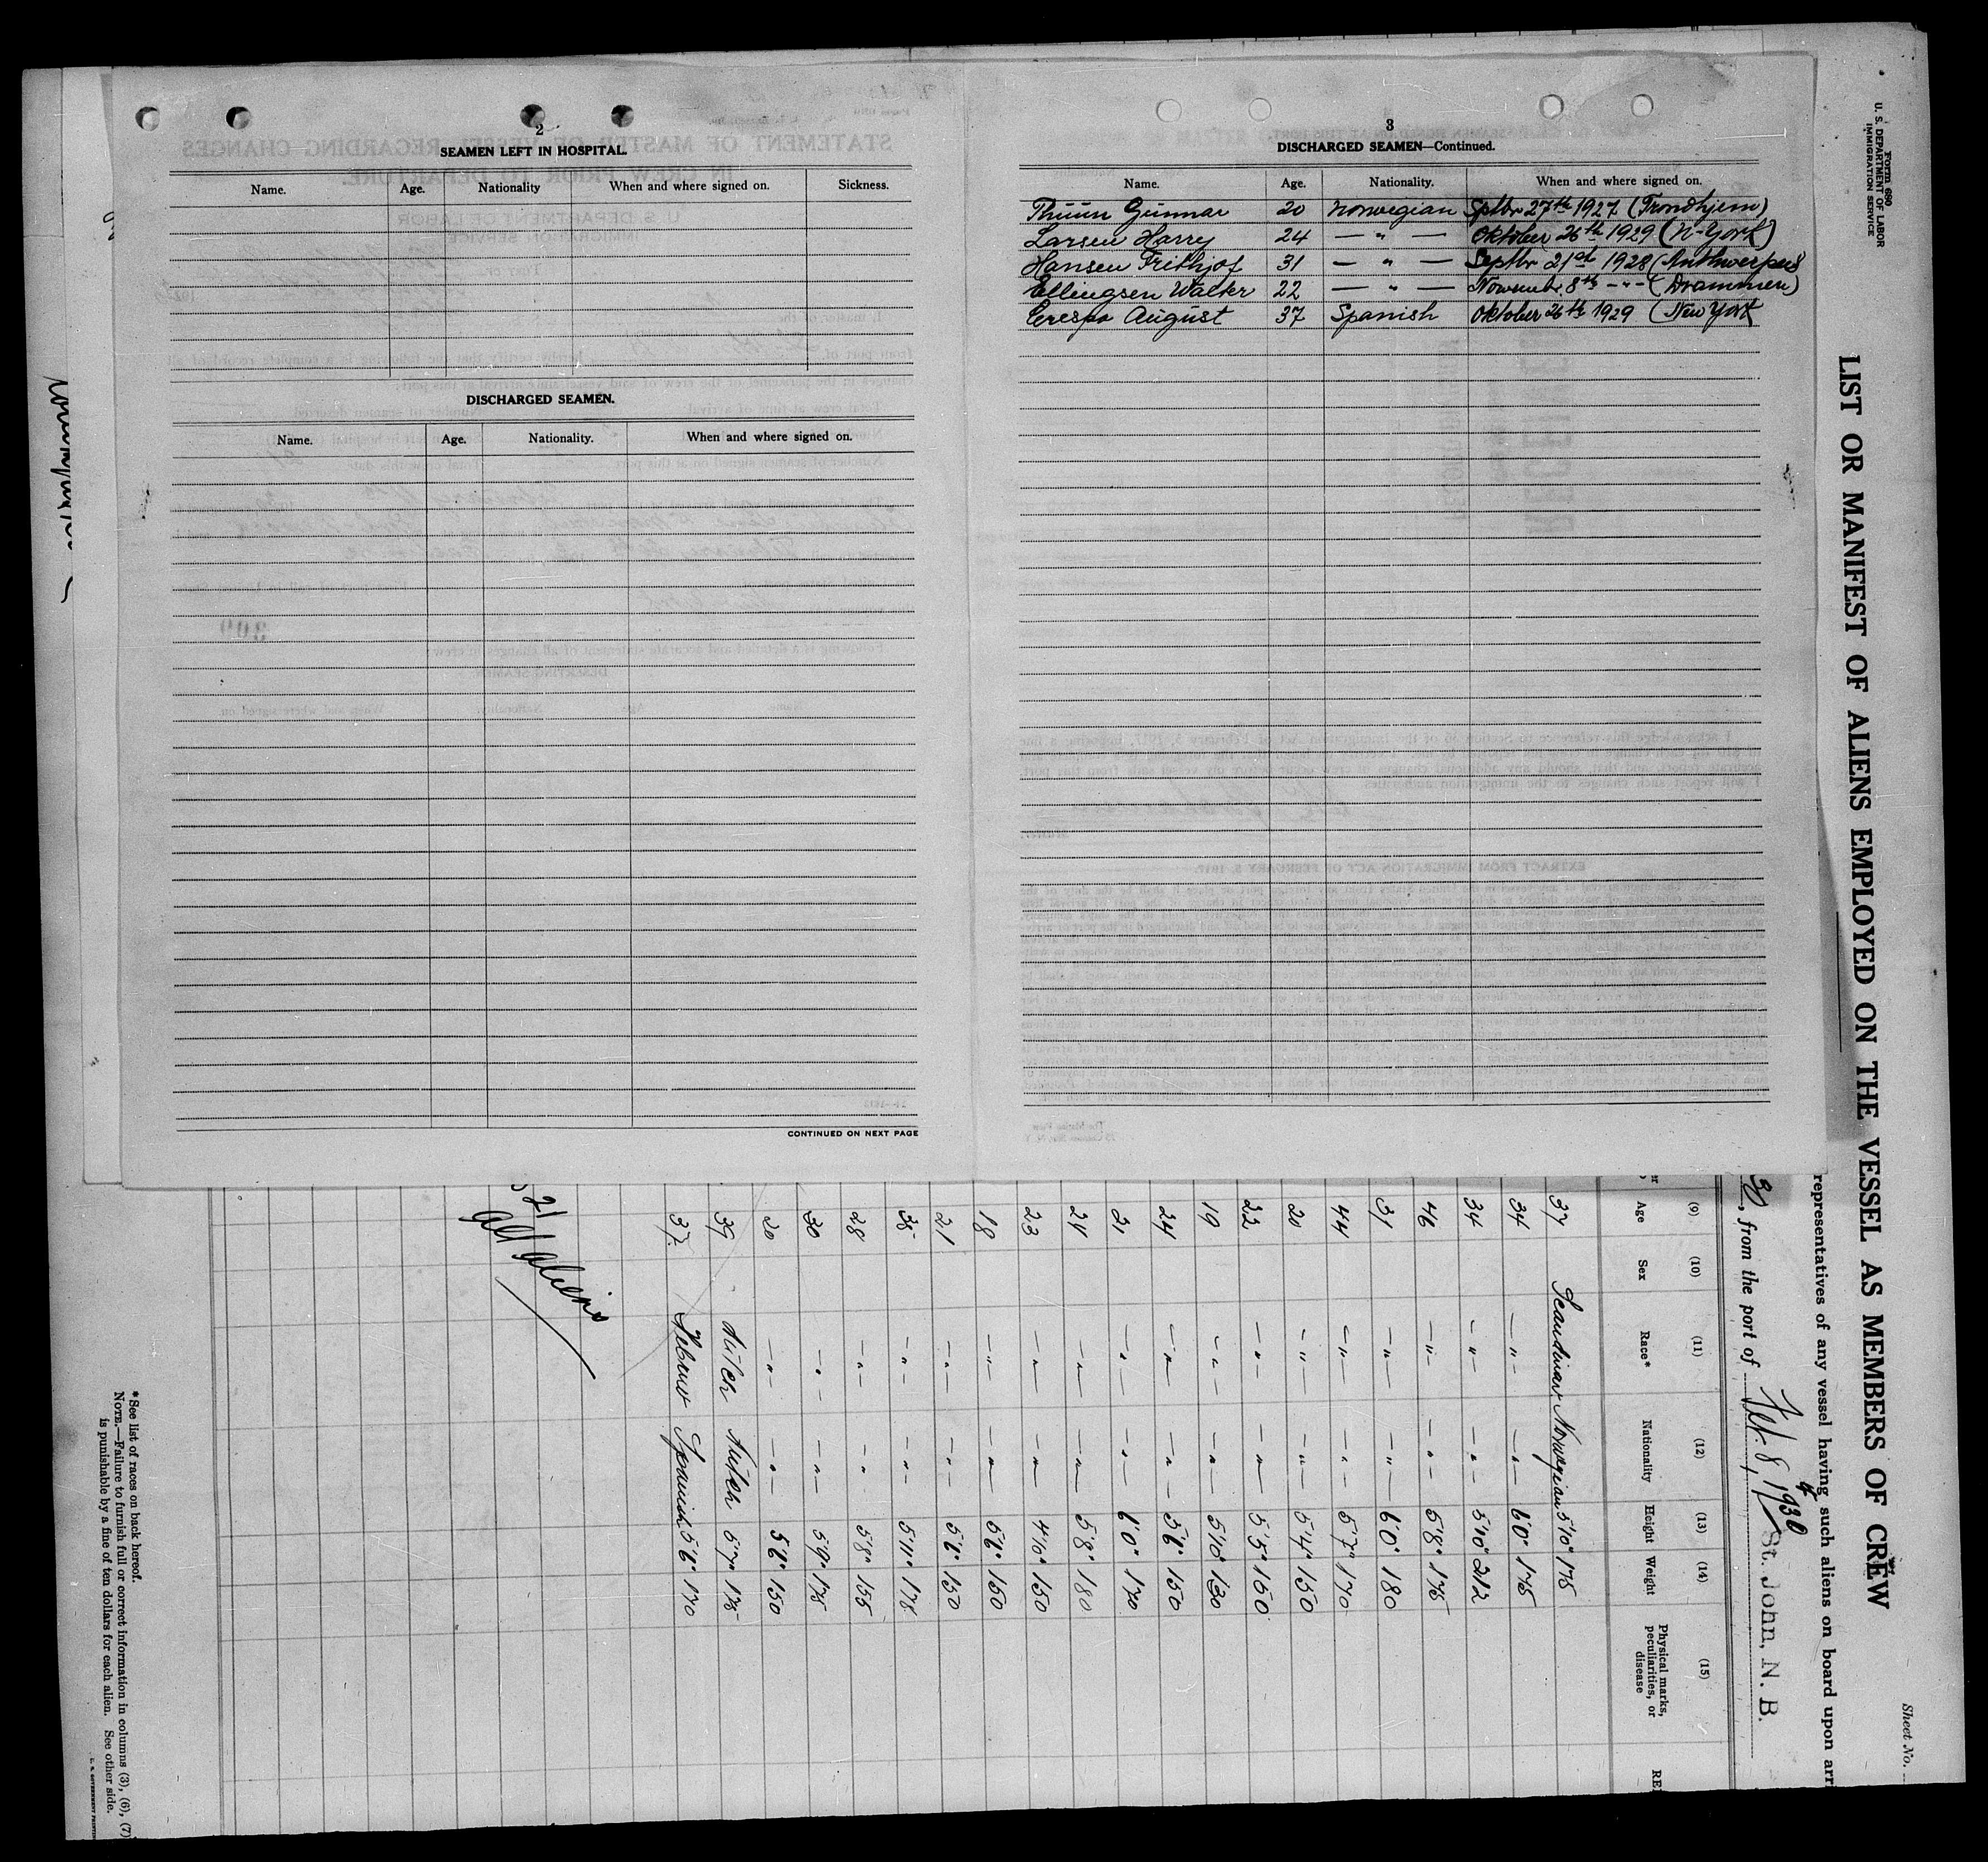 2
SEAMEN LEFT IN HOSPITAL.
Name. Age. Nationality When and where signed on. Sickness.
DISCHARGED SEAMEN.
Name. Age. Nationality. When and where signed on.
CONTINUED ON NEXT PAGE
3
DISCHARGED SEAMEN—Continued.
Name. Age. Nationality. When and where signed on.
Thuun Gunnar 20 Norwegian Septbr 27th 1927 (Trondhjem)
Larsen Harry 24 — " — Oktober 26th 1929 (N-York)
Hansen Frithjof 31 — " — Septbr 21st 1928 (Anthwerpen)
Ellingsen Walter 22 — " — November 8th -"- (Drammen)
Crespo August 37 Spanish Oktober 26th 1929 (New York
Form 680
U. S. DEPARTMENT OF LABOR
IMMIGRATION SERVICE
Sheet No.
LIST OR MANIFEST OF ALIENS EMPLOYED ON THE VESSEL AS MEMBERS OF CREW
representatives of any vessel having such aliens on board upon arr
, from the port of Feb. 8, 1930 St. John, N. B.
(9) (10) (11) (12) (13) (14) (15)
Age Sex Race* Nationality Height Weight Physical marks, peculiarities, or disease RE
37 Scandinav Norwegian 5'10" 175
34 -"- -"- 6'0" 175
34 -"- -"- 5'10" 212
46 -"- -"- 5'8" 175
31 -"- -"- 6'0" 180
44 -"- -"- 5'7" 170
20 -"- -"- 5'4" 150
22 -"- -"- 5'5" 160
19 -"- -"- 5'10" 130
24 -"- -"- 5'6" 150
21 -"- -"- 6'0" 170
24 -"- -"- 5'8" 180
23 -"- -"- 150
18 -"- -"- 5'6" 160
21 -"- -"- 5'6" 150
38 -"- -"- 5'11" 178
28 -"- -"- 5'8" 155
30 -"- -"- 5'9" 175
20 -"- -"- 5'6" 150
39 Dutch Dutch 5'7" 175
37 Hebrew Spanish 5'6" 170
21
All Aliens
*See list of races on back hereof.
NOTE.—Failure to furnish full or correct information in columns (3), (6), (7)
is punishable by a fine of ten dollars for each alien. See other side.